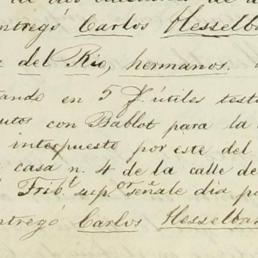 de dos
ntregó Carlos Hesselba
del Rio, hermanos.
tando en 5 f. útiles testi
utos con Bablot para la
interpuesto por este del
casa n. 4 de la calle de
Tribl. supor. señale dia pa
ntregó Carlos Hesselbar